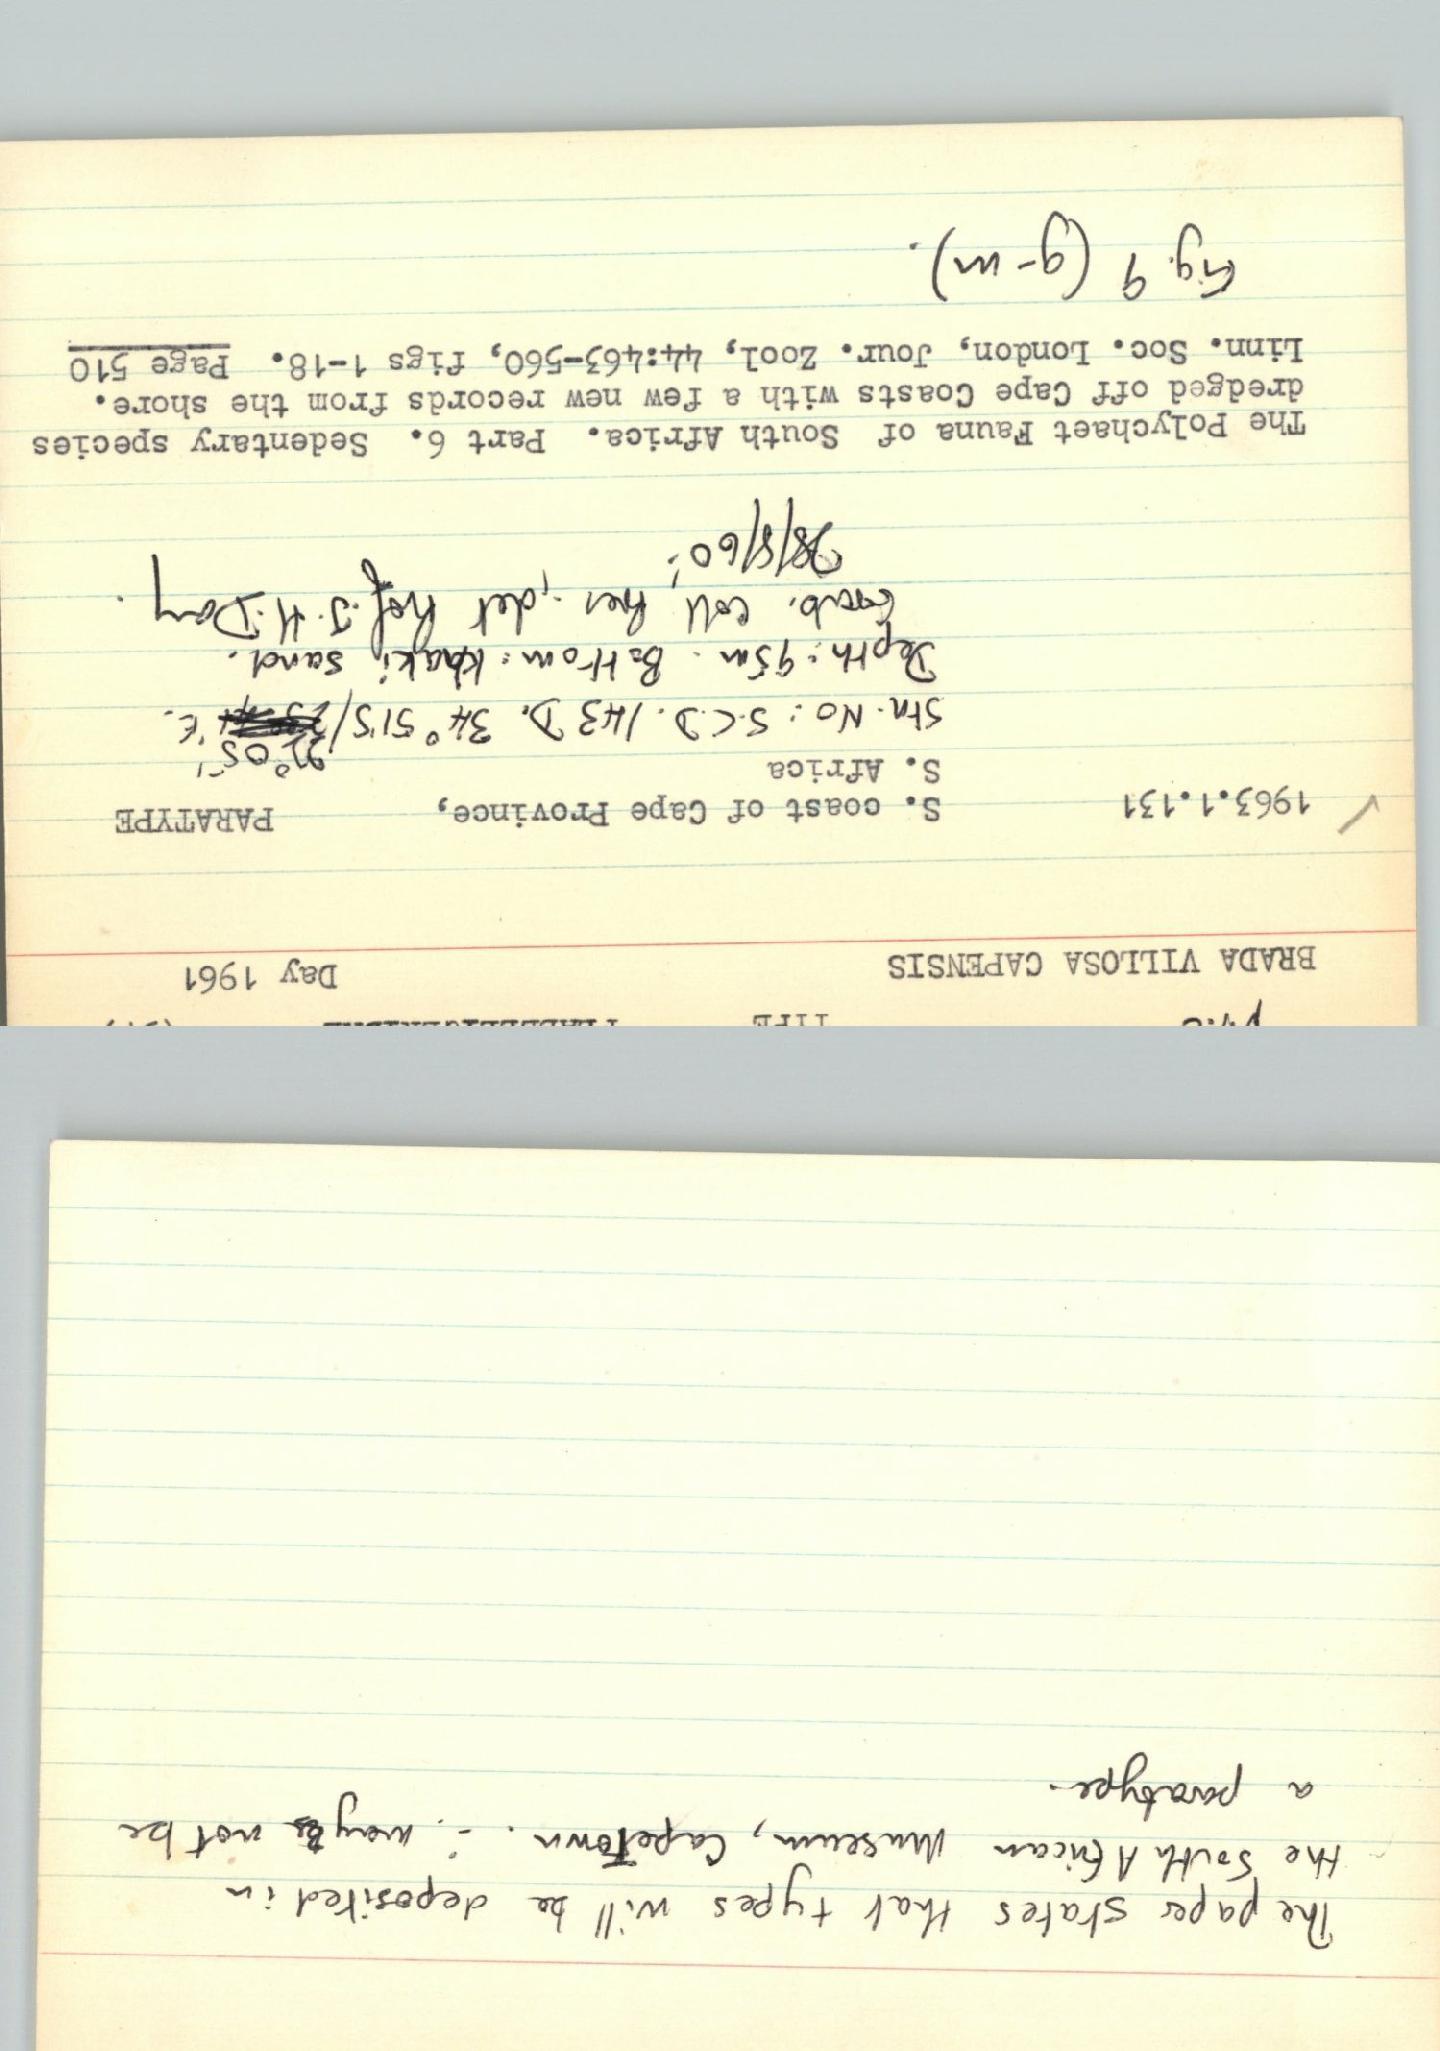 The paper states that types will be deposited in
the South African Museum, CapeTown. ∴ may not be
a paratype.
TYPE FLABELLIGERIDAE
BRADA VILLOSA CAPENSIS Day 1961
1963.1.131 S. coast of Cape Province, PARATYPE
S. Africa
Stn. No: S.C.D. 143 D. 34° 51'S/ 22° 05' E.
Depth: 95m. Bottom: Khaki sand.
Grab. Coll, Pres., det Prof. J.H. Day.
28/8/60.
The Polychaet Fauna of South Africa. Part 6. Sedentary species
dredged off Cape Coasts with a few new records from the shore.
Linn. Soc. London, Jour. Zool, 44:463-560, figs 1-18. Page 510
Fig. 9 (g-m).